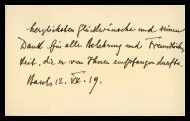 herzlichsten Glückwünsche und seinen
Dank für alle Belehrung und Freundlich-
keit, die er von Ihnen empfangen durfte.
12. VII. 19.